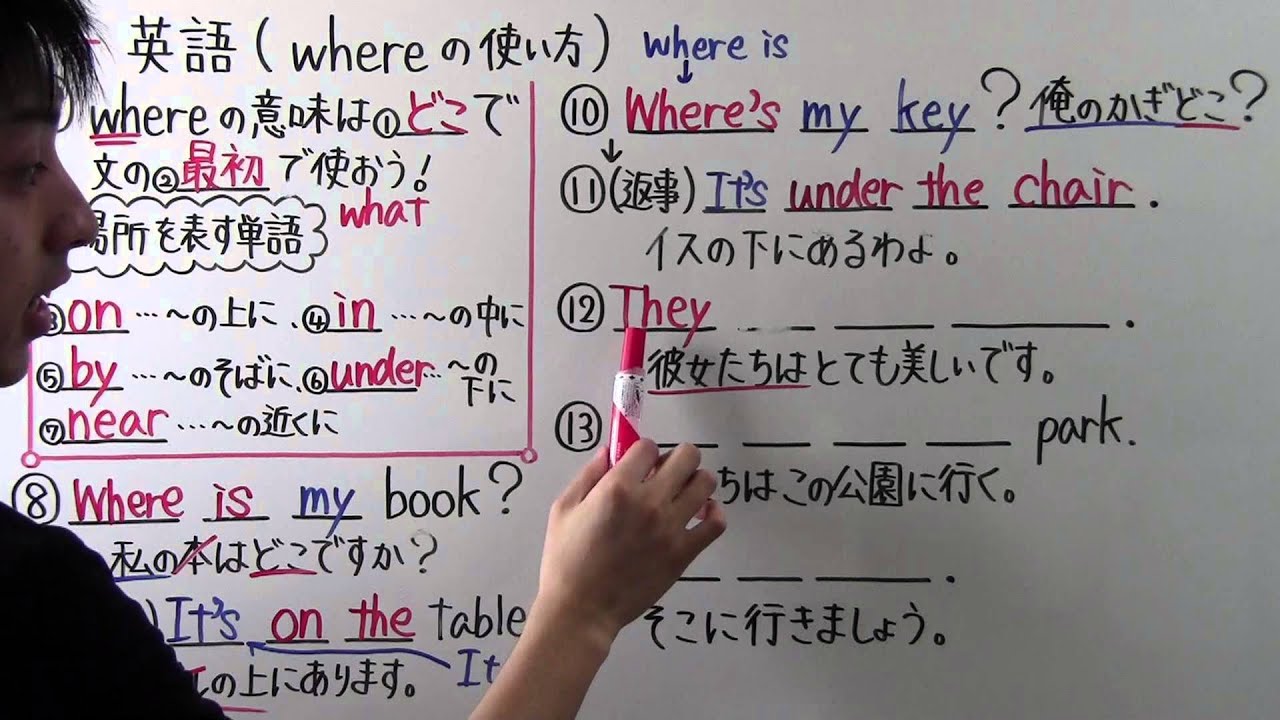 英語(whereの使い方)
whereの意味は①どこで
文の②最初で使おう!
what
場所を表す単語
③on …~の上に、④in …~の中に
⑤by …~のそばに、⑥under…~の下に
⑦near …~の近くに
⑧Where is my book?
私の本はどこですか?
It's on the table
It
の上にあります。
where is
⑩Where's my key?俺のかぎどこ?
⑪(返事)It's under the chair.
イスの下にあるわよ。
⑫They
彼女たちはとても美しいです。
⑬ park.
ちはこの公園に行く。
そこに行きましょう。